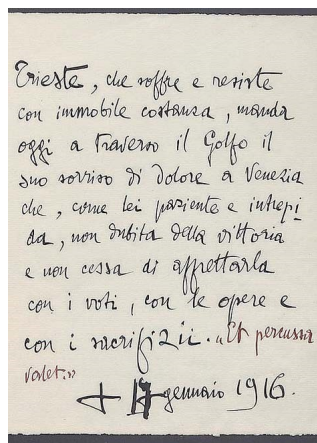 Trieste, che soffre e resiste
con immobile costanza, manda
oggi a traverso il Golfo il
suo sorriso di dolore a Venezia
che, come lei paziente e intrepi
da, non dubita della vittoria
e non cessa di affrettarla
con i voti, con le opere e
con i sacrifizii. «Et percussa
valet.»
+ 17 gennaio 1916.